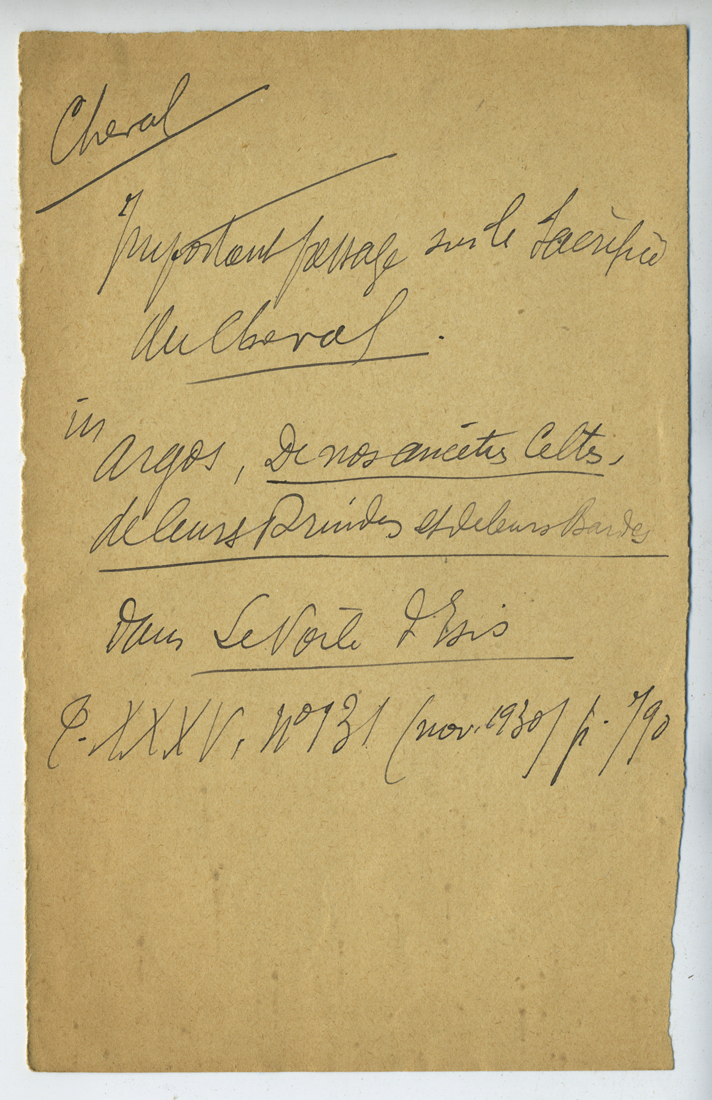 Cheval
Important passage sur le Sacrifice
du Cheval.
in
Argos, De nos ancêtres Celtes,
de leurs Druides et de leurs Bardes
dans Le Voile d'Isis
t. XXXV, n° 131 (nov. 1930) p. 790